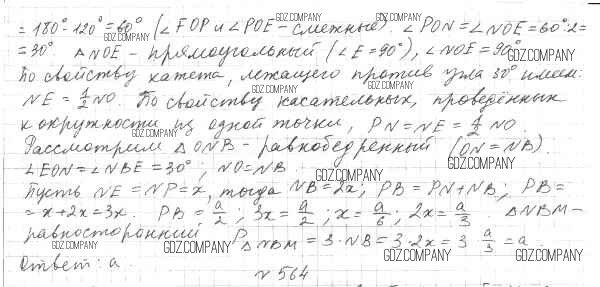 = 180° - 120° = 60° (∠FOP и ∠POE - смежные). ∠PON = ∠NOE = 60°:2 =
= 30°. △NOE - прямоугольный (∠E = 90°), ∠NOE = 90°
По свойству катета, лежащего против угла 30° имеем:
NE = 1/2 NO. По свойству касательных, проведённых
к окружности из одной точки, PN = NE = 1/2 NO.
Рассмотрим △ONB - равнобедренный (ON = NB).
∠EON = ∠NBE = 30°, NO = NB.
Пусть NE = NP = x, тогда NB = 2x; PB = PN + NB; PB =
= x + 2x = 3x. PB = a/2; 3x = a/2; x = a/6; 2x = a/3. △NBM -
равносторонний P△NBM = 3·NB = 3·2x = 3 a/3 = a.
Ответ: a.
№ 564
GDZ.COMPANY
GDZ.COMPANY
GDZ.COMPANY
GDZ.COMPANY
GDZ.COMPANY
GDZ.COMPANY
GDZ.COMPANY
GDZ.COMPANY
GDZ.COMPANY
GDZ.COMPANY
GDZ.COMPANY
GDZ.COMPANY
GDZ.COMPANY